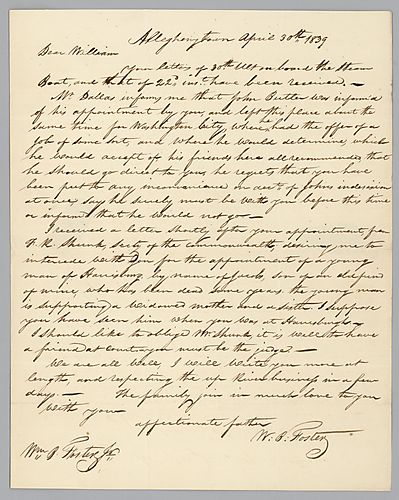 Alleghenytown April 30th. 1839
Dear William
Your letters of 30th Ult on board the Steam
Boat, and that of 22d inst have been received. —
Mr Dallas informs me that John Butler was informed
of his appointment by you, and left this place about the
same time for Washington City, where had the offer of a
job of some sort, and where he would determine, which
he would accept of his friends here all recommended that
he should go direct to you, he regrets that you have
been put to any inconvenience on acct of Johns indecision
at once, say he surely must be with you before this time
or inform that he would not go —
I received a letter shortly after your appointment, from
F. R. Shunk, Secty of the commonwealth, desiring me to
intercede with you for the appointment of a young
man of Harrisburg, by name of, son of an old friend
of mine, who has been dead some years. the young man
is supporting a widowed mother and a sister. I suppose
you have seen him when you was at Harrisburgh —
I should like to oblige Mr Shunk, it is well to have
a friend at court, you must be the judge. —
We are all well, I will write you more at
length, and respecting the up River business in a few
days. — The family join in much love to you
with your
affectionate father
W. B. Foster
Wm. B. Foster Jr.